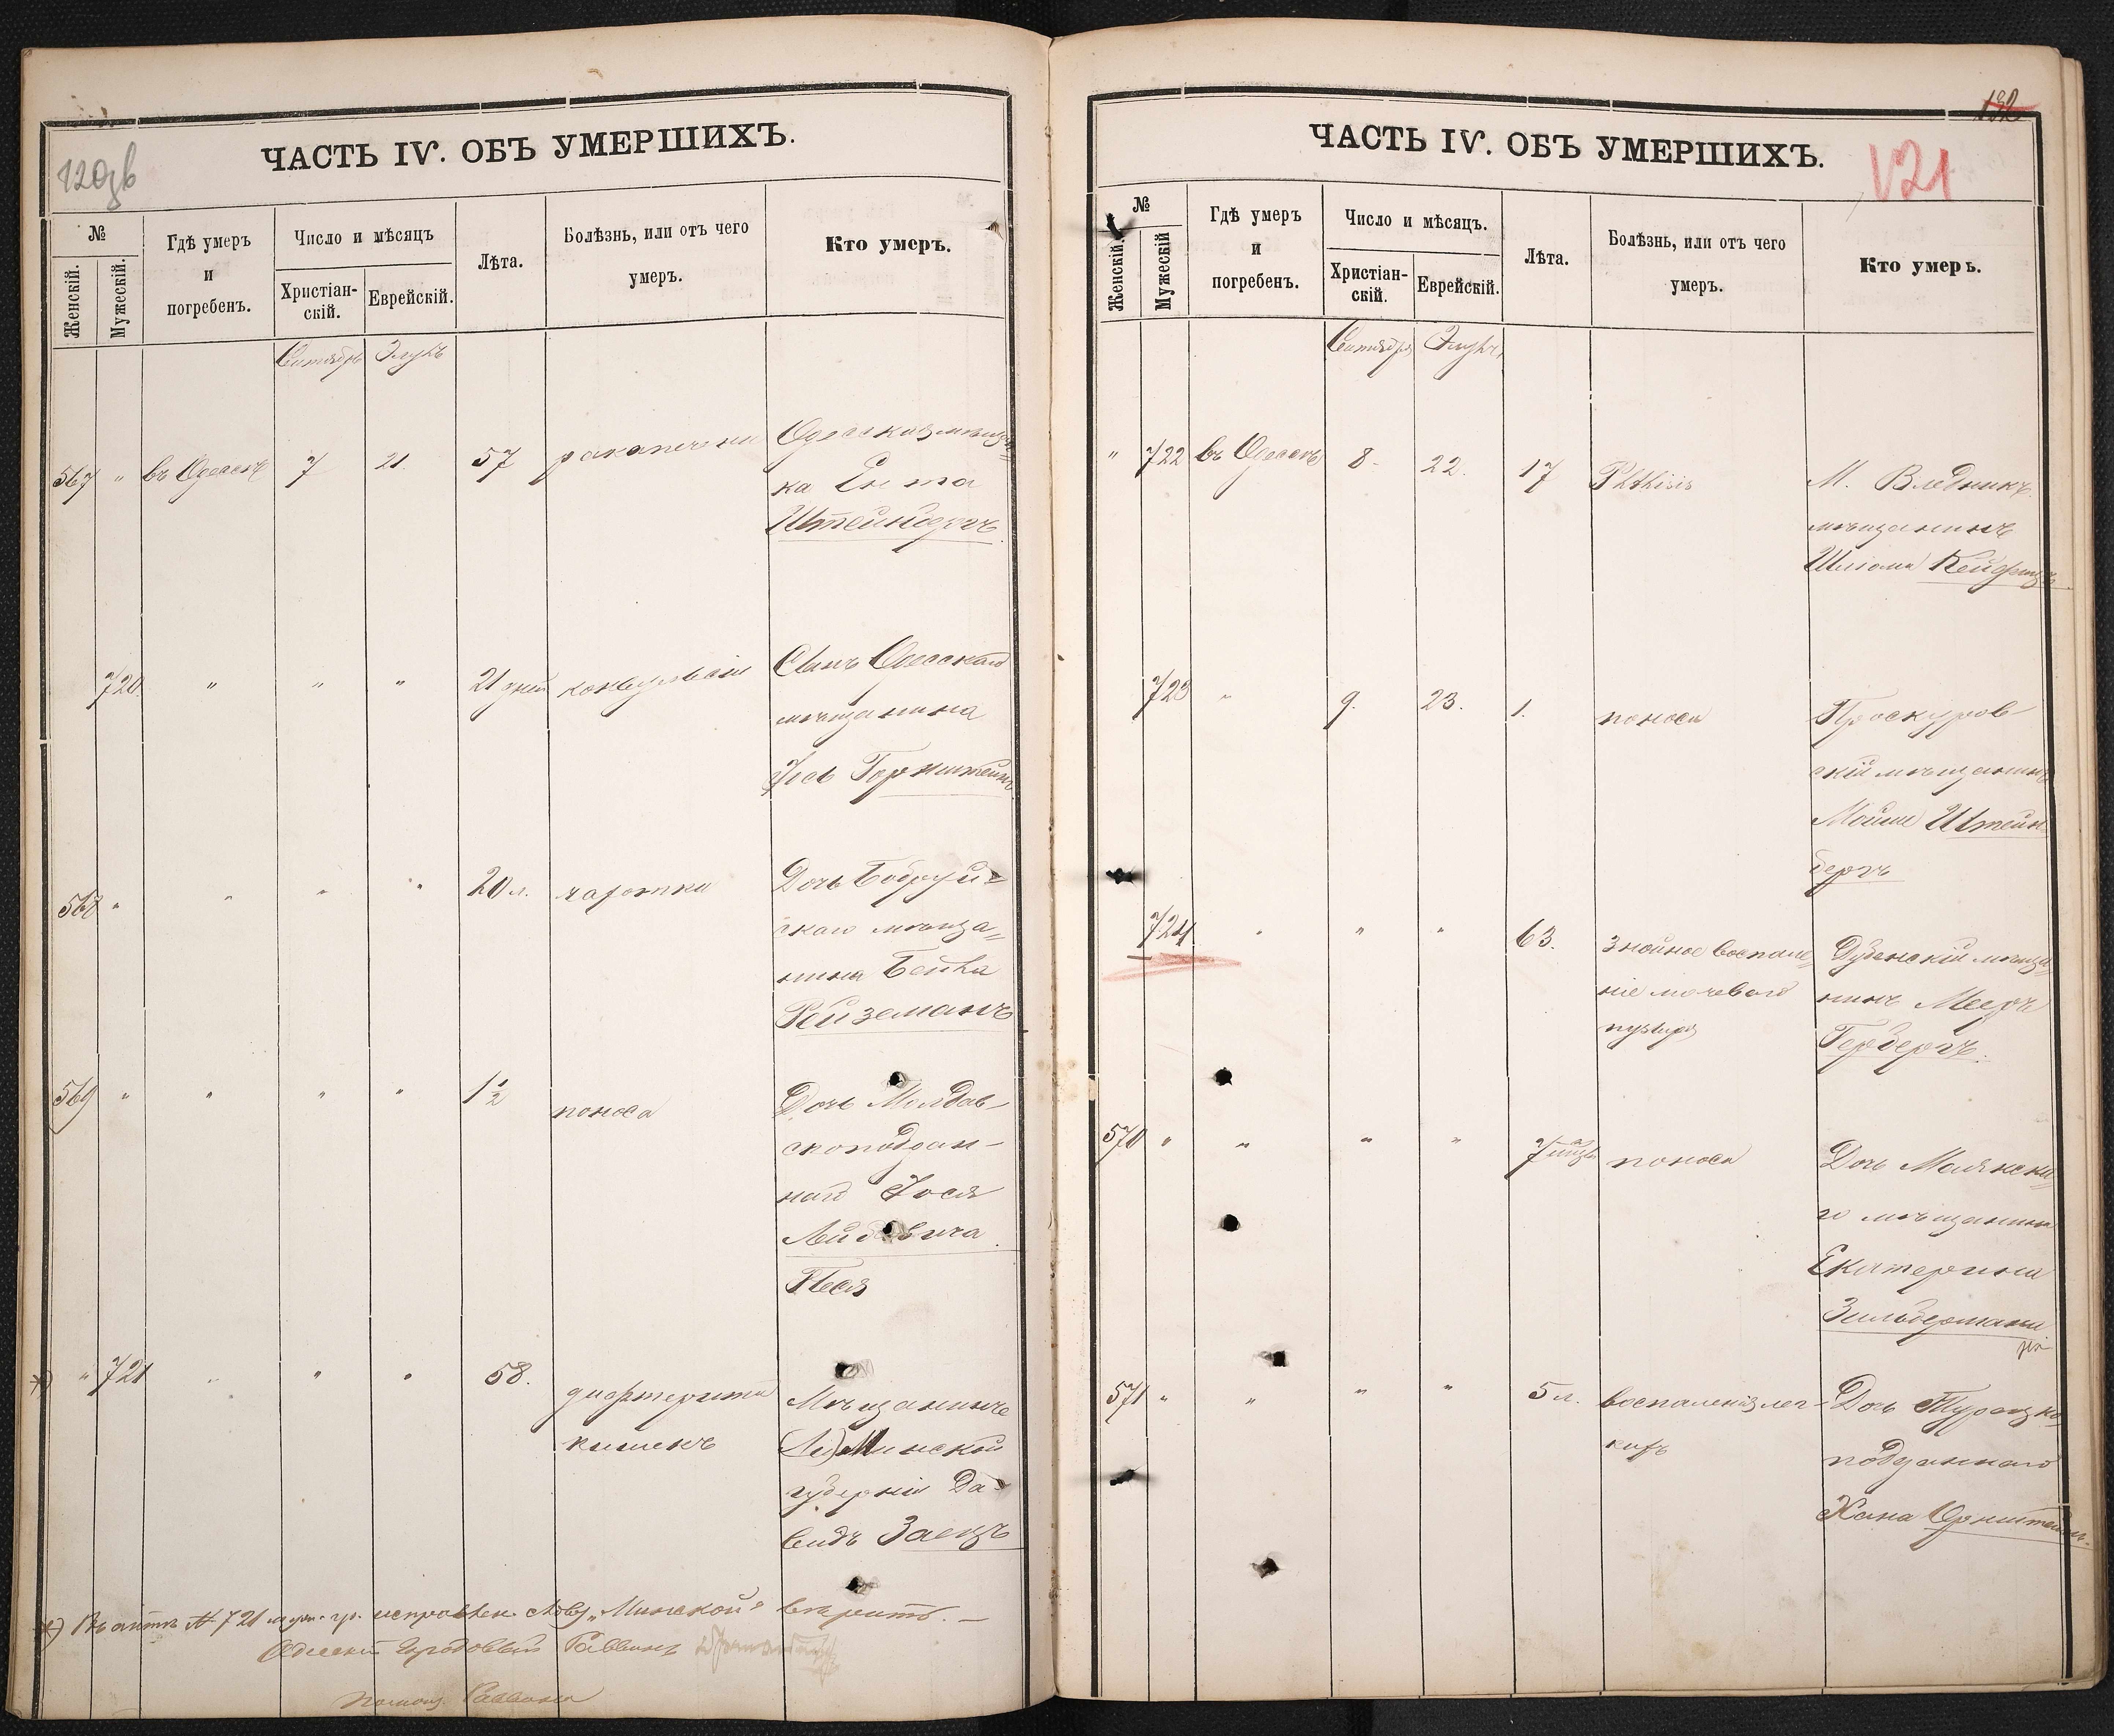 120зв
ЧАСТЬ IV. ОБЪ УМЕРШИХЪ.
№
Женскій.
Мужескій.
Гдѣ умеръ
и
погребенъ.
Число и мѣсяцъ
Христіан-
скій.
Еврейскій.
Лѣта.
Болѣзнь, или отъ чего
умеръ.
Кто умеръ.
Сентябрь Элулъ
567 " въ Одессѣ 7 21 57 рака печени Одесская мѣщан=
ка Ента
Штейнбергъ
720. " " " 21 дней конвульсіи Сынъ Одесскаго
мѣщанина
Іось Горнштейнъ
568 " " " " 20 л. чахотки Дочь Бобруй=
скаго мѣща=
нина Бейла
Рейземанъ
569 " " " " 1 1/2 поноса Дочь Молдав-
скоподдан-
наго Іося
Лейбовича
Песя
*) " 721 " " " 58. дифтерита
кишекъ
Мѣщанинъ
Минской
губерніи Да=
видъ Заецъ
*) Въ актѣ № 721 муж. гр. исправлен. слову „Минской" вѣрить. —
Одесскій Городовый Раввинъ
Помощ. Раввина
132
121
ЧАСТЬ IV. ОБЪ УМЕРШИХЪ.
№
Женскій.
Мужескій
Гдѣ умеръ
и
погребенъ.
Число и мѣсяцъ.
Христіан-
скій.
Еврейскій.
Лѣта.
Болѣзнь, или отъ чего
умеръ.
Кто умеръ.
Сентября Элулъ
" 722 въ Одессѣ 8. 22. 17 Phthisis М.
мѣщанинъ
Шлiома
723 " 9. 23. 1. поноса Проскуров
скій мѣщанинъ
Мойше Штейн
бергъ
724 " " " 63. знойное воспале=
ніе мочеваго
пузыря
Дубенскій мѣща=
нинъ Мееръ
Герbергъ.
570 " " " " 7 мѣсяц. поноса Дочь
го мѣщанина
Екатерина
Зильберманъ
571 " " " " 5 л. воспаленія лег-
кихъ
Дочь Турецко=
подданнаго
Хана Орнштейнъ.